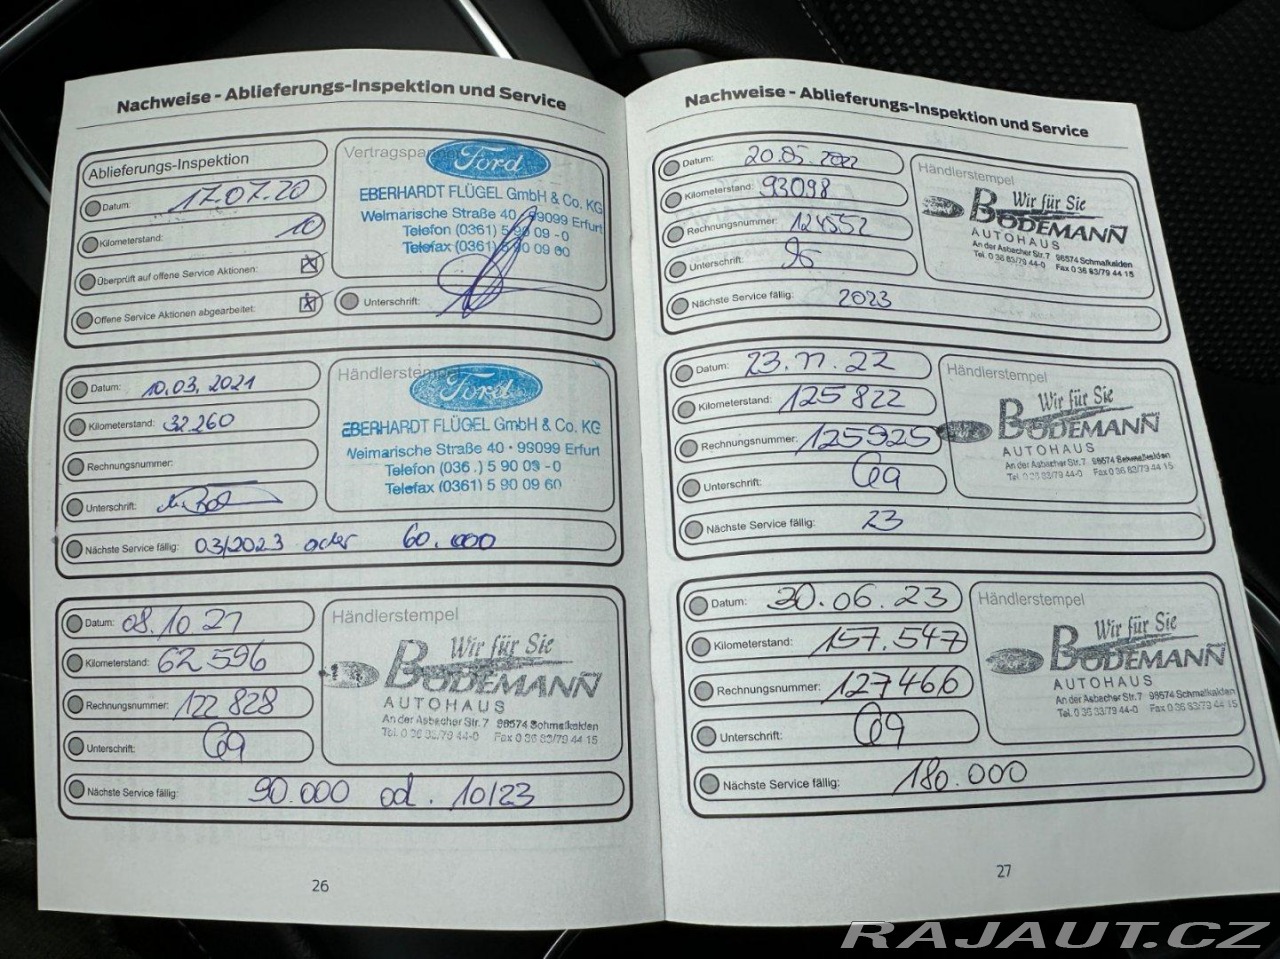 Nachweise - Ablieferungs-Inspektion und Service
Ablieferungs-Inspektion
Datum: 17.07.20
Kilometerstand: 10
Überprüft auf offene Service Aktionen:
Offene Service Aktionen abgearbeitet:
Ford
EBERHARDT FLÜGEL GmbH & Co. KG
Weimarische Straße 40 99099 Erfurt
Telefon (0361) 5 90 09 - 0
Telefax (0361) 5 90 09 60
Unterschrift:
Datum: 10.03.2021
Kilometerstand: 32.260
Rechnungsnummer:
Unterschrift:
Händlerstempel
Ford
EBERHARDT FLÜGEL GmbH & Co. KG
Weimarische Straße 40 • 99099 Erfurt
Telefon (036.) 5 90 09 - 0
Telefax (0361) 5 900 9 60
Nächste Service fällig: 03/2023 oder 60.000
Datum: 08.10 21
Kilometerstand: 62 596
Rechnungsnummer: 122 828
Unterschrift:
Händlerstempel
Wir für Sie
BODEMANN
AUTOHAUS
An der Asbacher Str. 7 98574 Schmalkalden
Tel. 0 36 83/79 44-0 Fax 0 36 83/79 44 15
Nächste Service fällig: 90.000 od. 10/23
26
Nachweise - Ablieferungs-Inspektion und Service
Datum: 20.05.2022
Kilometerstand: 93098
Rechnungsnummer: 124552
Unterschrift:
Nächste Service fällig: 2023
Händlerstempel
Wir für Sie
BODEMANN
AUTOHAUS
An der Asbacher Str. 7 98574 Schmalkalden
Tel. 0 36 83/79 44-0 Fax 0 36 83/79 44 15
Datum: 23.11.22
Kilometerstand: 125822
Rechnungsnummer: 125925
Unterschrift:
Nächste Service fällig: 23
Händlerstempel
Wir für Sie
BODEMANN
AUTOHAUS
An der Asbacher Str. 7 98574 Schmalkalden
Tel. 0 36 83/79 44-0 Fax 0 36 83/79 44 15
Datum: 30.06.23
Kilometerstand: 157.547
Rechnungsnummer: 127466
Unterschrift:
Händlerstempel
Wir für Sie
BODEMANN
AUTOHAUS
An der Asbacher Str. 7 98574 Schmalkalden
Tel. 0 36 83/79 44-0 Fax 0 36 83/79 44 15
Nächste Service fällig: 180.000
27
RAJAUT.CZ